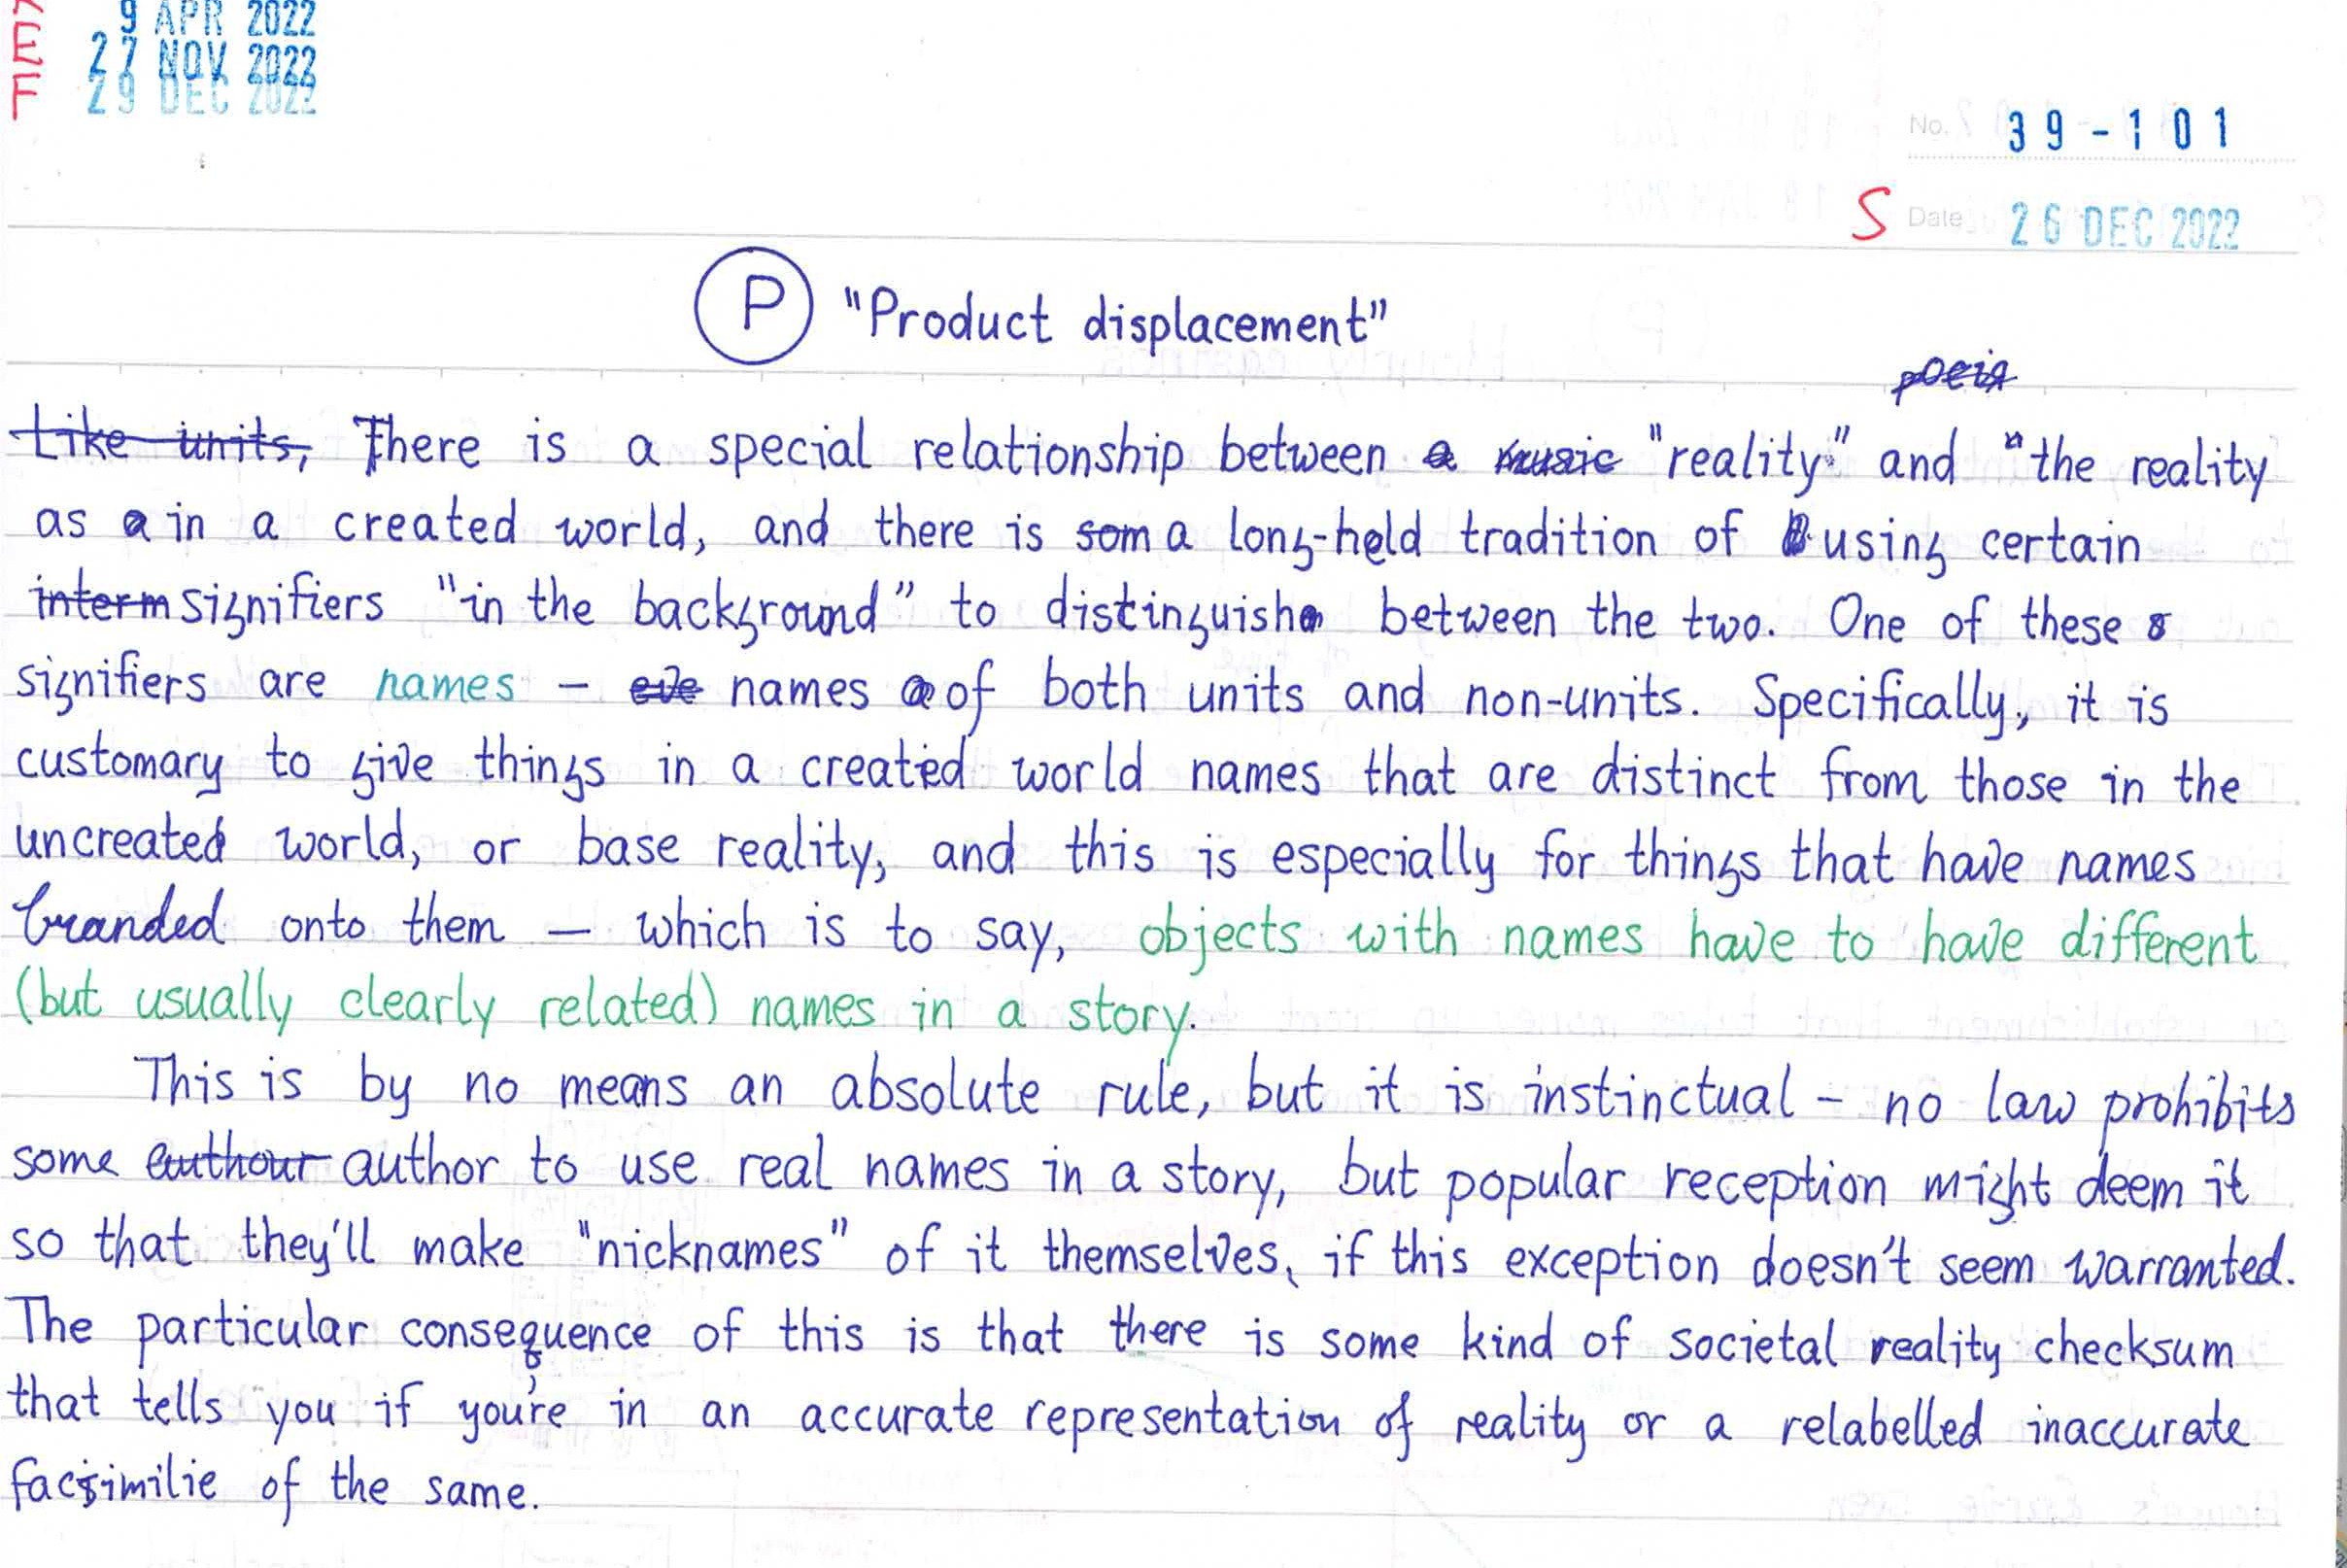 E 9 APR 2022
27 NOV 2022
F 29 DEC 2022
No. 39-101
S Date 26 DEC 2022
P "Product displacement"
Like units, There is a special relationship between a music "reality" and "the reality
as a in a created world, and there is som a long-held tradition of using certain
interm signifiers "in the background" to distinguish between the two. One of these s
signifiers are names – eve names a of both units and non-units. Specifically, it is
customary to give things in a created world names that are distinct from those in the
uncreated world, or base reality, and this is especially for things that have names
branded onto them – which is to say, objects with names have to have different
(but usually clearly related) names in a story.
This is by no means an absolute rule, but it is instinctual – no law prohibits
some authour author to use real names in a story, but popular reception might deem it
so that they'll make "nicknames" of it themselves, if this exception doesn't seem warranted.
The particular consequence of this is that there is some kind of societal reality checksum
that tells you if you're in an accurate representation of reality or a relabelled inaccurate
facsimilie of the same.